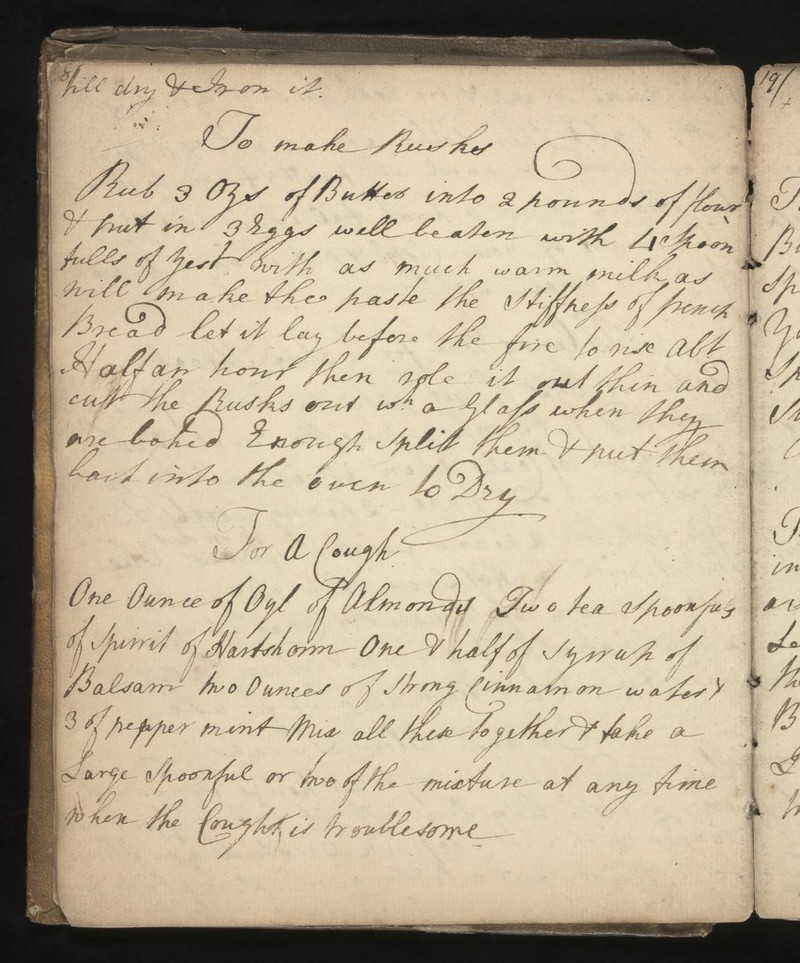 till dry & Iron it.
To make Rusks
Rub 3 Ozs of Butter into 2 pounds of flour
& put in 3 Eggs well beaten with 4 Spoon
fulls of Yest with as much warm milk as
will make the paste the Stiffness of french
Bread let it lay before the fire to rise abt
Half an hour then role it out thin and
cut the Rusks out wh a Glass when they
are baked Enough split them & put them
back into the oven to Dry
For A Cough
One Ounce of Oyl of Almonds Two tea spoonfus
of Spirrit of Hartshorn One & half of Syrrup of
Balsam two Ounces of Strong Cinnamon water &
3 of pepper mint Mix all these together & take a
Large Spoonful or two of the mixture at any time
when the Cough is troublesome
19/